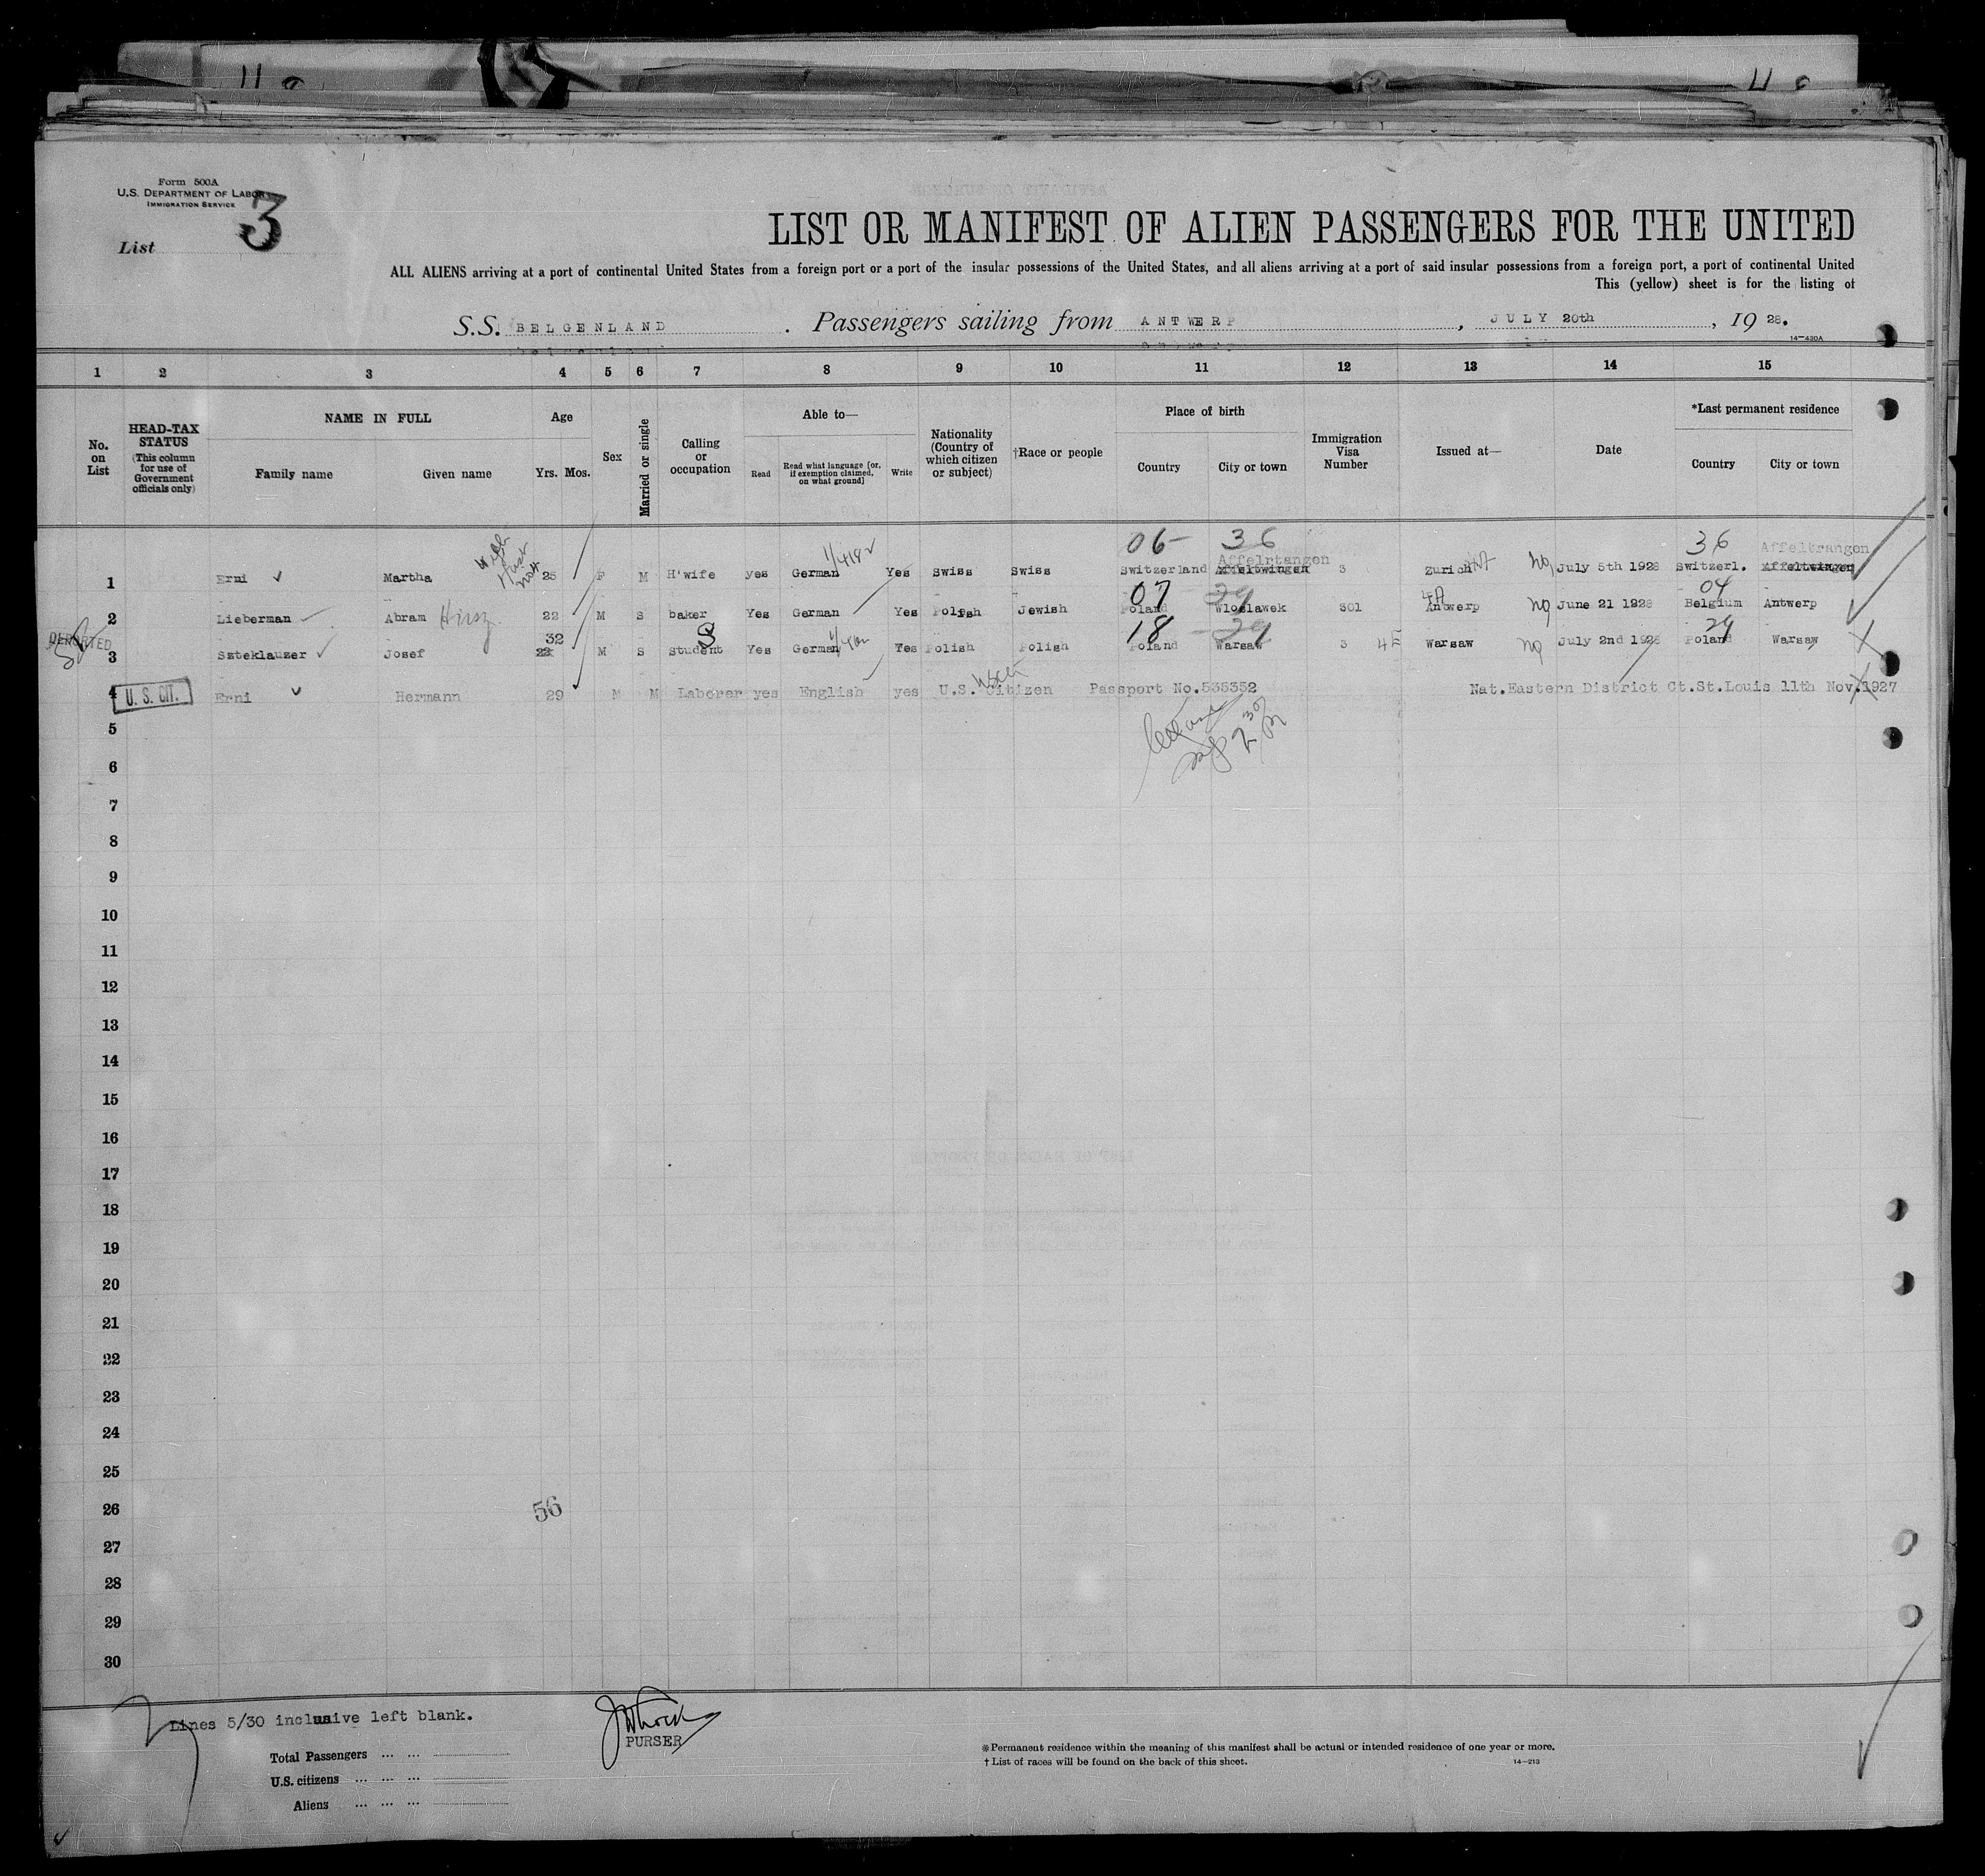 Form 500A
U.S. DEPARTMENT OF LABOR
IMMIGRATION SERVICE
List 3
LIST OR MANIFEST OF ALIEN PASSENGERS FOR THE UNITED
ALL ALIENS arriving at a port of continental United States from a foreign port or a port of the insular possessions of the United States, and all aliens arriving at a port of said insular possessions from a foreign port, a port of continental United
This (yellow) sheet is for the listing of
S.S. BELGENLAND . Passengers sailing from ANTWERP , JULY 20th , 19 28.
14—430A
1 2 3 4 5 6 7 8 9 10 11 12 13 14 15
No. on List
HEAD-TAX STATUS
(This column for use of Government officials only)
NAME IN FULL
Family name Given name
Age
Yrs. Mos.
Sex
Married or single
Calling or occupation
Able to—
Read
Read what language [or, if exemption claimed, on what ground]
Write
Nationality (Country of which citizen or subject)
†Race or people
Place of birth
Country City or town
Immigration Visa Number
Issued at—
Date
*Last permanent residence
Country City or town
06- 36 36
Affelrtangen Affeltrangen
1 Erni Martha 25 F M H'wife yes German Yes Swiss Swiss Switzerland Affeltwingen 3 Zurich July 5th 1928 Switzerl. Affeltwingen
07 29 4A 04
2 Lieberman Abram Hirsz 22 M S baker Yes German Yes Polish Jewish Poland Wloclawek 301 Antwerp June 21 1928 Belgium Antwerp
DEPORTED 32 S 18 29 29
3 Szteklauzer Josef 22 M S student Yes German Yes Polish Polish Poland Warsaw 3 Warsaw July 2nd 1928 Poland Warsaw
4 U. S. CIT. Erni Hermann 29 M M Laborer yes English yes U.S. Citizen Passport No.535352 Nat.Eastern District Ct.St.Louis 11th Nov.1927
5
6
7
8
9
10
11
12
13
14
15
16
17
18
19
20
21
22
23
24
25
26
56
27
28
29
30
Lines 5/30 inclusive left blank.
PURSER
Total Passengers ... ...
U.S. citizens ... ... ...
Aliens ... ... ...
*Permanent residence within the meaning of this manifest shall be actual or intended residence of one year or more.
†List of races will be found on the back of this sheet.
14—213